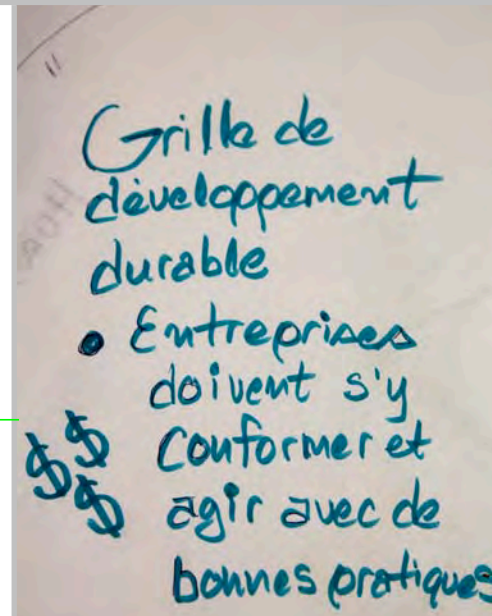 Grille de
développement
durable
• Entreprises
doivent s'y
$$ conformer et
$ agir avec de
bonnes pratiques